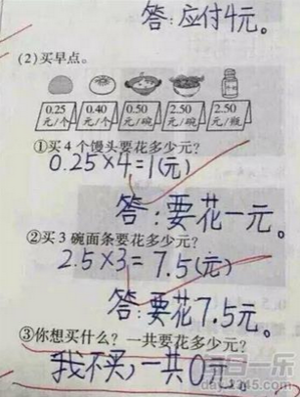 答:应付4元。
(2)买早点。
0.25 0.40 0.50 2.50 2.50
元/个 元/个 元/碗 元/碗 元/瓶
①买4个馒头要花多少元?
0.25×4=1(元)
答:要花一元。
②买3碗面条要花多少元?
2.5×3=7.5(元)
答:要花7.5元。
③你想买什么?一共要花多少元?
我不买,一共0元。
day.2345.com